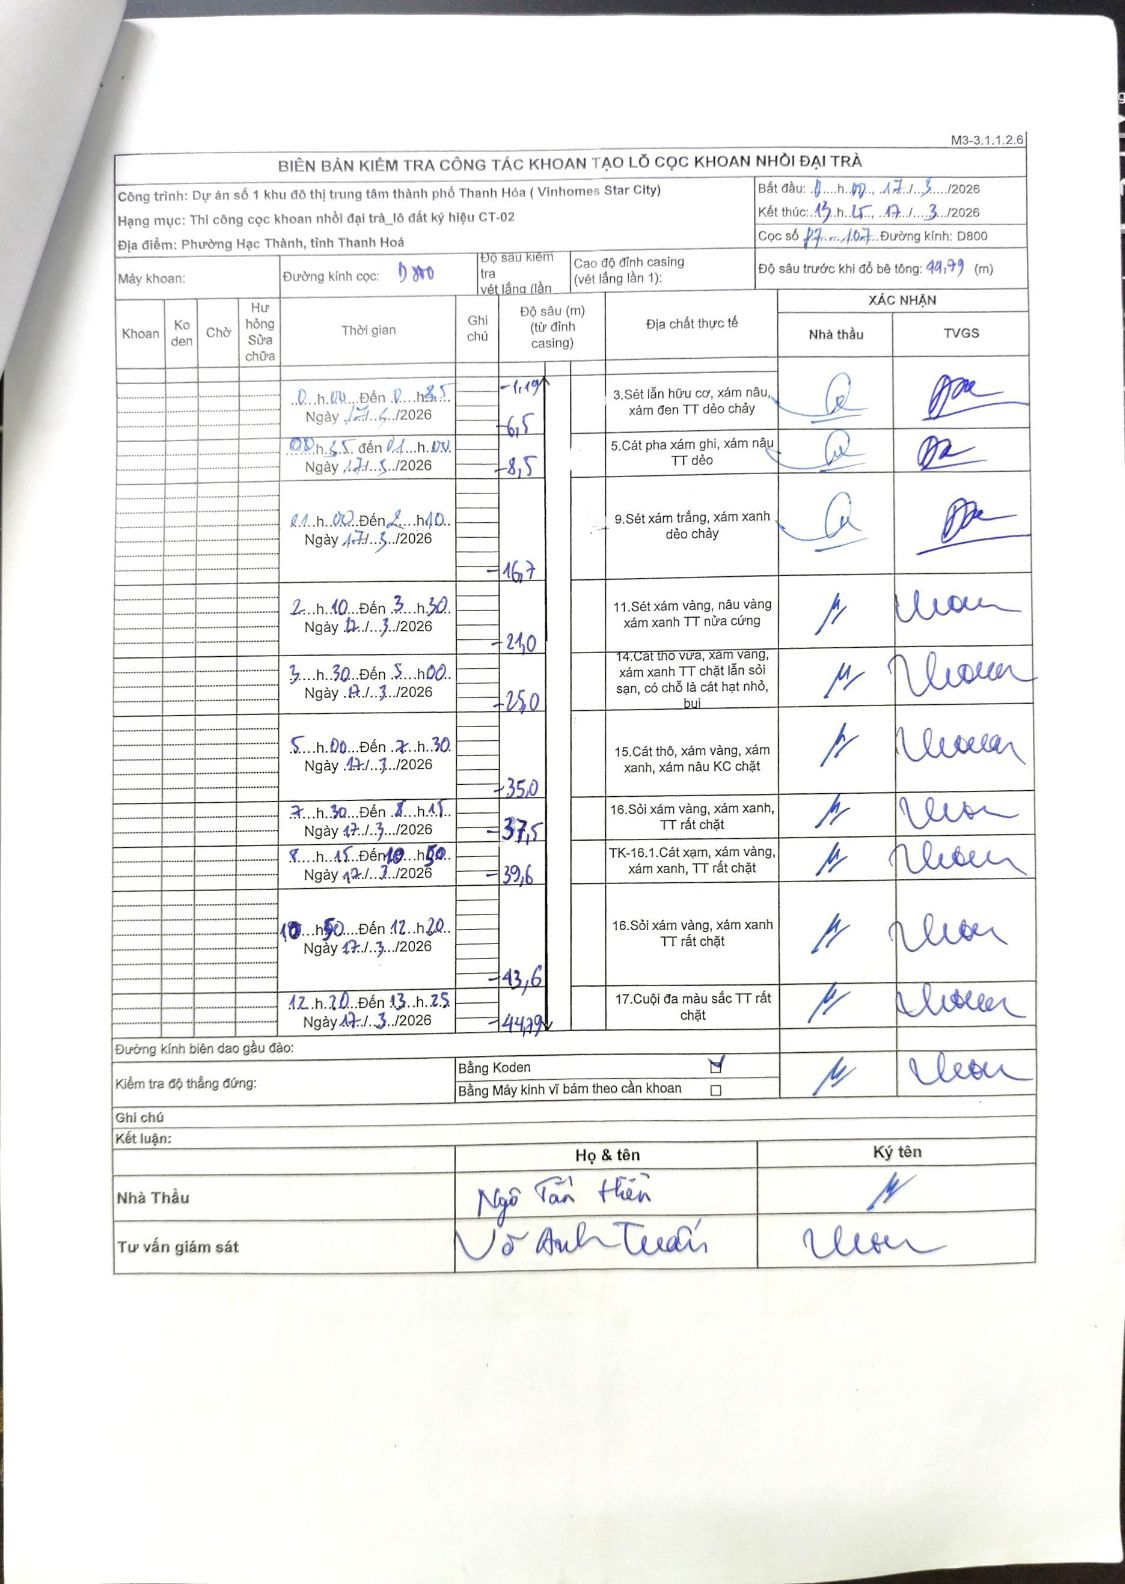 M3-3.1.1.2.6
BIÊN BẢN KIỂM TRA CÔNG TÁC KHOAN TẠO LỖ CỌC KHOAN NHỒI ĐẠI TRÀ
Công trình: Dự án số 1 khu đô thị trung tâm thành phố Thanh Hóa ( Vinhomes Star City)
Hạng mục: Thi công cọc khoan nhồi đại trà_lô đất ký hiệu CT-02
Địa điểm: Phường Hạc Thành, tỉnh Thanh Hoá
Bắt đầu: 0...h.00.., 17../..3..../2026
Kết thúc: 13.h.25.., 17../....3.../2026
Cọc số P7....107..Đường kính: D800
Máy khoan:
Đường kính cọc: D800
Độ sâu kiểm
tra
vét lắng (lần
Cao độ đỉnh casing
(vét lắng lần 1):
Độ sâu trước khi đổ bê tông: 44,79 (m)
Khoan
Ko
den
Chờ
Hư
hỏng
Sửa
chữa
Thời gian
Ghi
chú
Độ sâu (m)
(từ đỉnh
casing)
Địa chất thực tế
XÁC NHẬN
Nhà thầu
TVGS
-1,19
..0...h.00...Đến .0...h
Ngày 17../.../2026
-6,5
3.Sét lẫn hữu cơ, xám nâu,
xám đen TT dẻo chảy
00.h. đến 01...h.00.
Ngày 17./.3../2026
-8,5
5.Cát pha xám ghi, xám nâu
TT dẻo
01...h..00...Đến 2....h10..
Ngày .17./..3../2026
-16,7
9.Sét xám trắng, xám xanh
dẻo chảy
2...h..10...Đến .3...h.30.
Ngày .17./...3../2026
-21,0
11.Sét xám vàng, nâu vàng
xám xanh TT nửa cứng
3...h..30...Đến .5...h00..
Ngày .17./...3../2026
-25,0
14.Cát thô vừa, xám vàng,
xám xanh TT chặt lẫn sỏi
sạn, có chỗ là cát hạt nhỏ,
bụi
5....h.00...Đến ..7..h.30
Ngày .17./..3.../2026
-35,0
15.Cát thô, xám vàng, xám
xanh, xám nâu KC chặt
7...h..30...Đến ..8..h.15.
Ngày 17./..3.../2026
-37,5
16.Sỏi xám vàng, xám xanh,
TT rất chặt
8...h..15...Đến10...h50..
Ngày 17./...3../2026
-39,6
TK-16.1.Cát xạm, xám vàng,
xám xanh, TT rất chặt
10...h50...Đến 12..h20..
Ngày 17./..3../2026
-43,6
16.Sỏi xám vàng, xám xanh
TT rất chặt
12..h.20...Đến 13..h.25
Ngày17./...3../2026
-44,79
17.Cuội đa màu sắc TT rất
chặt
Đường kính biên dao gầu đào:
Kiểm tra độ thẳng đứng:
Bằng Koden
Bằng Máy kinh vĩ bám theo cần khoan
Ghi chú
Kết luận:
Họ & tên
Ký tên
Nhà Thầu
Ngô Tấn Hiền
Tư vấn giám sát
Võ Anh Tuấn